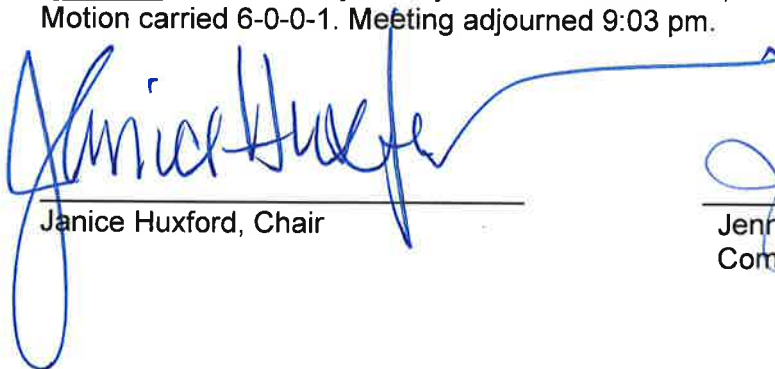 Motion carried 6-0-0-1. Meeting adjourned 9:03 pm.
Janice Huxford
Janice Huxford, Chair